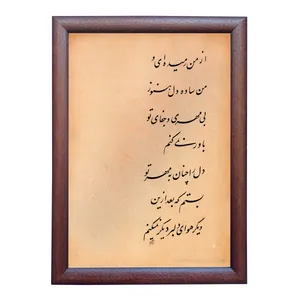 از من رمیده‌ای و
من ساده دل هنوز
بی مهری و جفای تو
باور نمی‌کنم
دل را چنان به مهر تو
بستم که بعد ازین
دیگر هوای دلبر دیگر نمیکنم